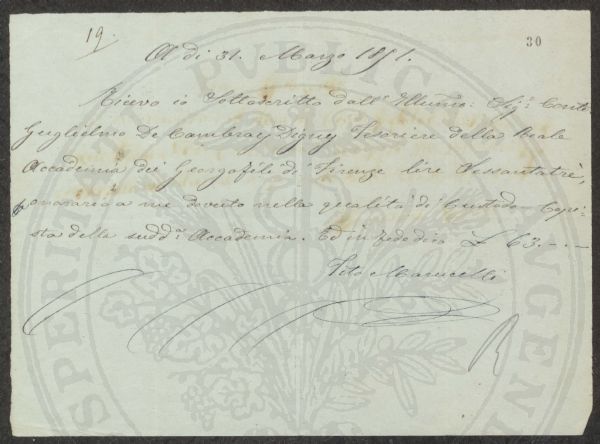 19.
30
A di 31. Marzo 1851.
Ricevo io Sottoscritto dall' Illmo: Sig: Conte
Guglielmo De Cambray Digny Tesoriere della Reale
Accademia dei Georgofili di Firenze lire Sessantatrè,
onorario a me dovuto nella qualità di Custode Copi-
sta della sudd.a Accademia. Ed in fede dico £ 63.-.-
Vito Marucelli
R
PUBLICAE
SPERITATI
AUGENDAE